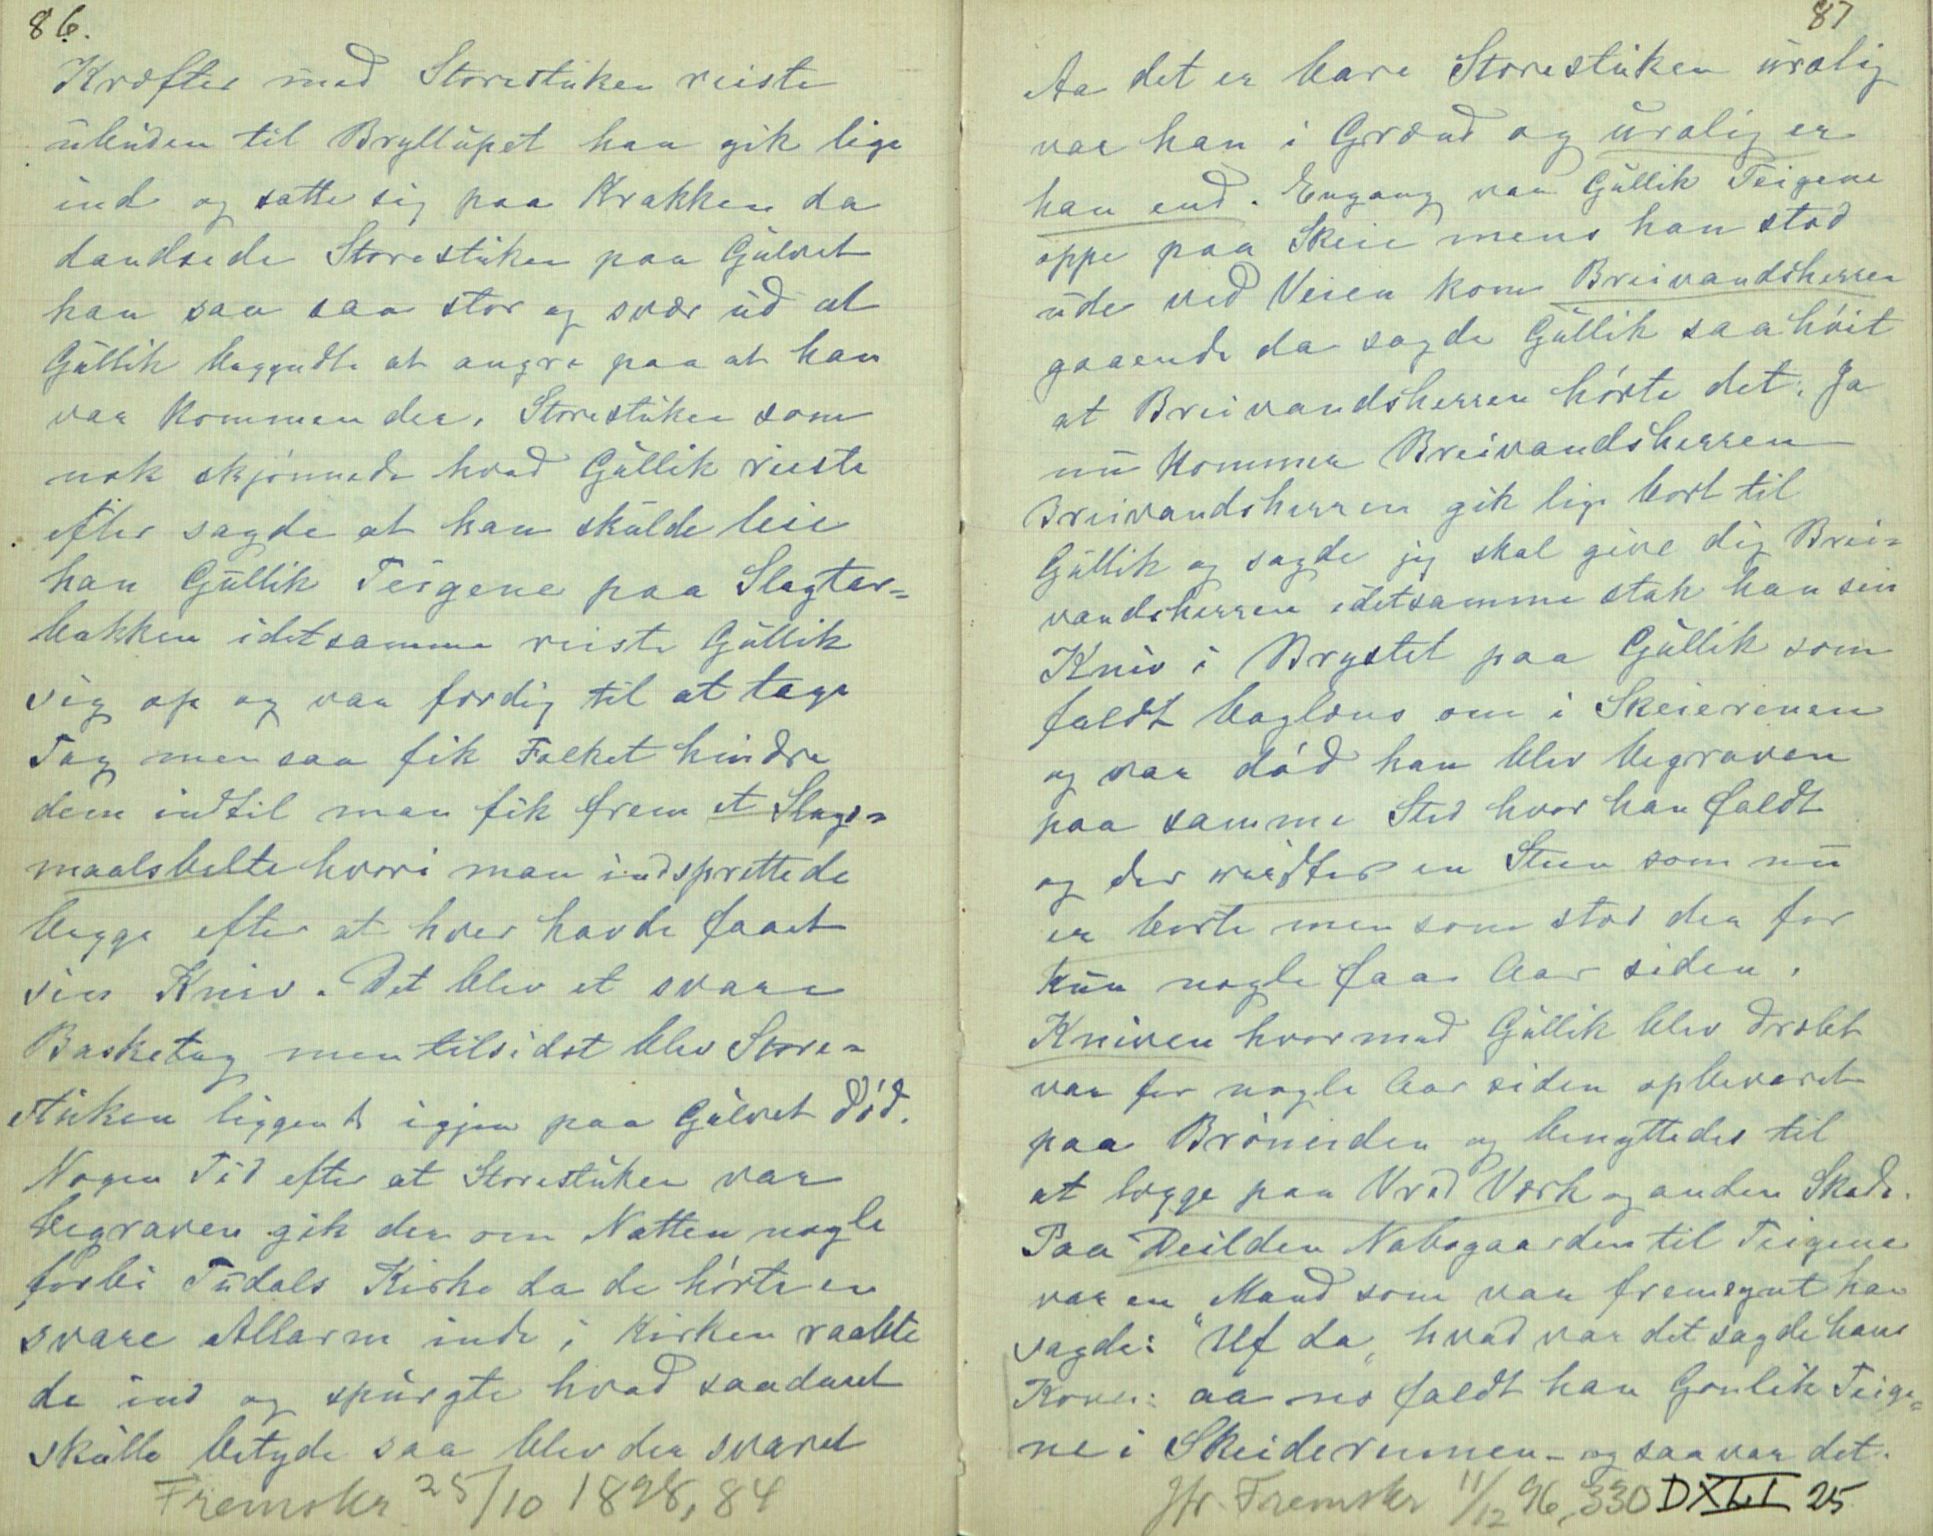 86.
Kræfter med Storestuken reiste
ubuden til Bryllupet han gik lige
ind og satte sig paa Krakken da
dandsede Storestuken paa Gulvet
han saa saa stor og svær ud at
Gullik begyndte at angre paa at han
var kommen der. Storestuken som
nok skjønnede hvad Gullik reiste
efter sagde at han skulde leie
han Gullik Teigene paa Slagter-
bakken idetsamme reiste Gullik
sig op og var færdig til at tage
Tag men saa fik Folket hindre
dem indtil man fik frem et Slags-
maalsbelte hvori man indsprettede
begge efter at hver havde faaet
sin Kniv. Det blev et svare
Basketag men tilsidst blev Store-
stuken liggende igjen paa Gulvet død.
Nogen Tid efter at Storestuken var
begraven gik der om Natten nogle
forbi Tudals Kirke da de hørte en
svare Allarm inde i Kirken raabte
de ind og spurgte hvad saadant
skulle betyde saa blev der svaret
Fremskr 25/10 1898, 84
87
Aa det er bare Storestuken uralig
var han i Grænd og uralig er
han end. Engang var Gullik Teigene
oppe paa Skeie mens han stod
ude ved Veien kom Breivandsherren
gaaende da sagde Gullik saa høit
at Breivandsherren hørte det: Ja
nu kommer Breivandsherren
Breivandsherren gik lige bort til
Gullik og sagde jeg skal give dig Brei-
vandsherren idetsamme stak han sin
Kniv i Brystet paa Gullik som
faldt baglæns om i Skeierenen
og var død han blev begraven
paa samme Sted hvor han faldt
og der reistes en Steen som nu
er borte men som stod der for
kun nogle faa Aar siden.
Kniven hvormed Gullik blev dræbt
var for nogle Aar siden opbevaret
paa Brøneiden og benyttedes til
at lægge paa Vred Værk og anden Skade.
Paa Deilden Nabogaarden til Teigene
var en Mand som var fremsynt han
sagde: "Uf da" hvad var det sagde hans
Kone: aa no faldt han Gonlik Teige-
ne i Skeiderunnen - og saa var det.
Jfr. Fremskr 11/12 96, 330 DXLI 25